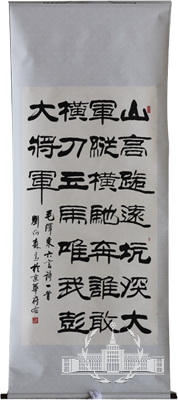 山高路遠坑深大
軍縱橫馳奔誰敢
橫刀立馬唯我彭
大將軍
毛澤東六言詩一首
於京華